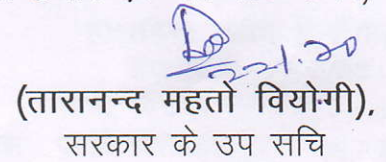 (तारानन्द महतो वियोगी),
सरकार के उप सचि